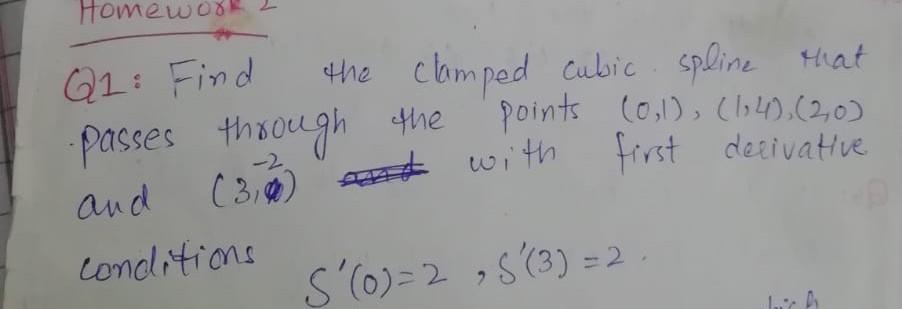 Homework 2
Q1: Find the clamped cubic spline that
passes through the points (0,1), (1,4), (2,0)
and (3,-2) with first derivative
conditions
S'(0)=2 , S'(3)=2.